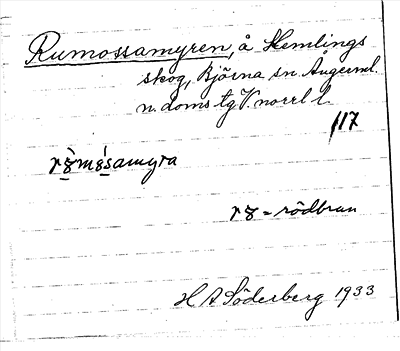 Rumossamyren, å Hemlings
skog, Björna sn. Ångerml.
n. doms tg V. norrl l.
117
samyra
= rödbrun
H A Söderberg 1933